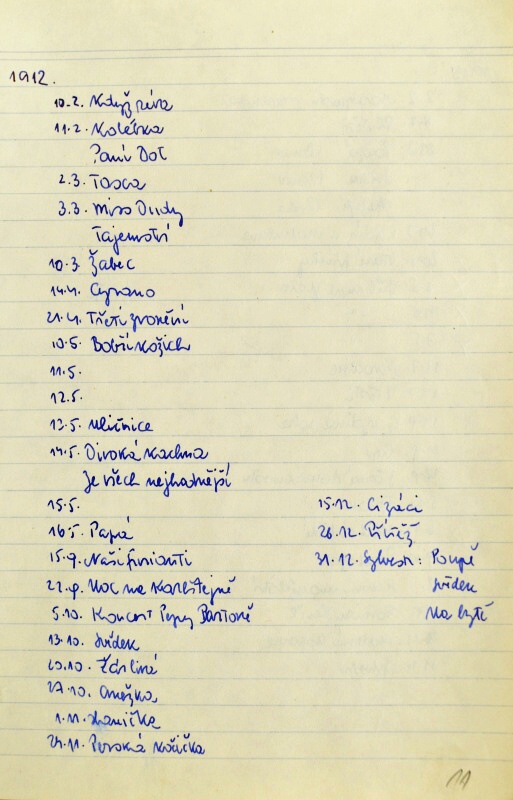 1912.
10.2. Když réva
11.2. Kolébka
Paní Dot
2.3. Tosca
3.3. Miss Dudy
Tajemství
10.3. Žabec
14.4. Cyrano
21.4. Třetí zvonění
10.5. Bobří kožich
11.5.
12.5.
13.5. Uličnice
14.5. Divoká kachna
Je všech nejhodnější
15.5.
16.5. Papá
15.9. Naši furianti
22.9. Noc na Karlštejně
5.10. Koncert Bartoně
13.10. Svědek
20.10. Žárlivá
27.10. Anežka
1.11.
24.11. Perská kožička
15.12. Cizáci
26.12. Přítěž
31.12. Sylvestr: Poupě
Svědek
Na bytě
14